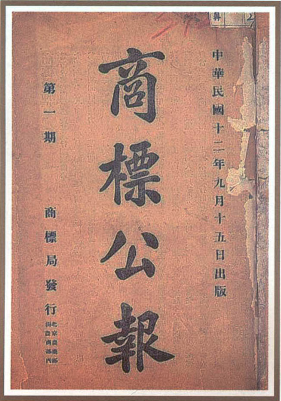 中華民國十二年九月十五日出版
商標公報
第一期
商標局發行